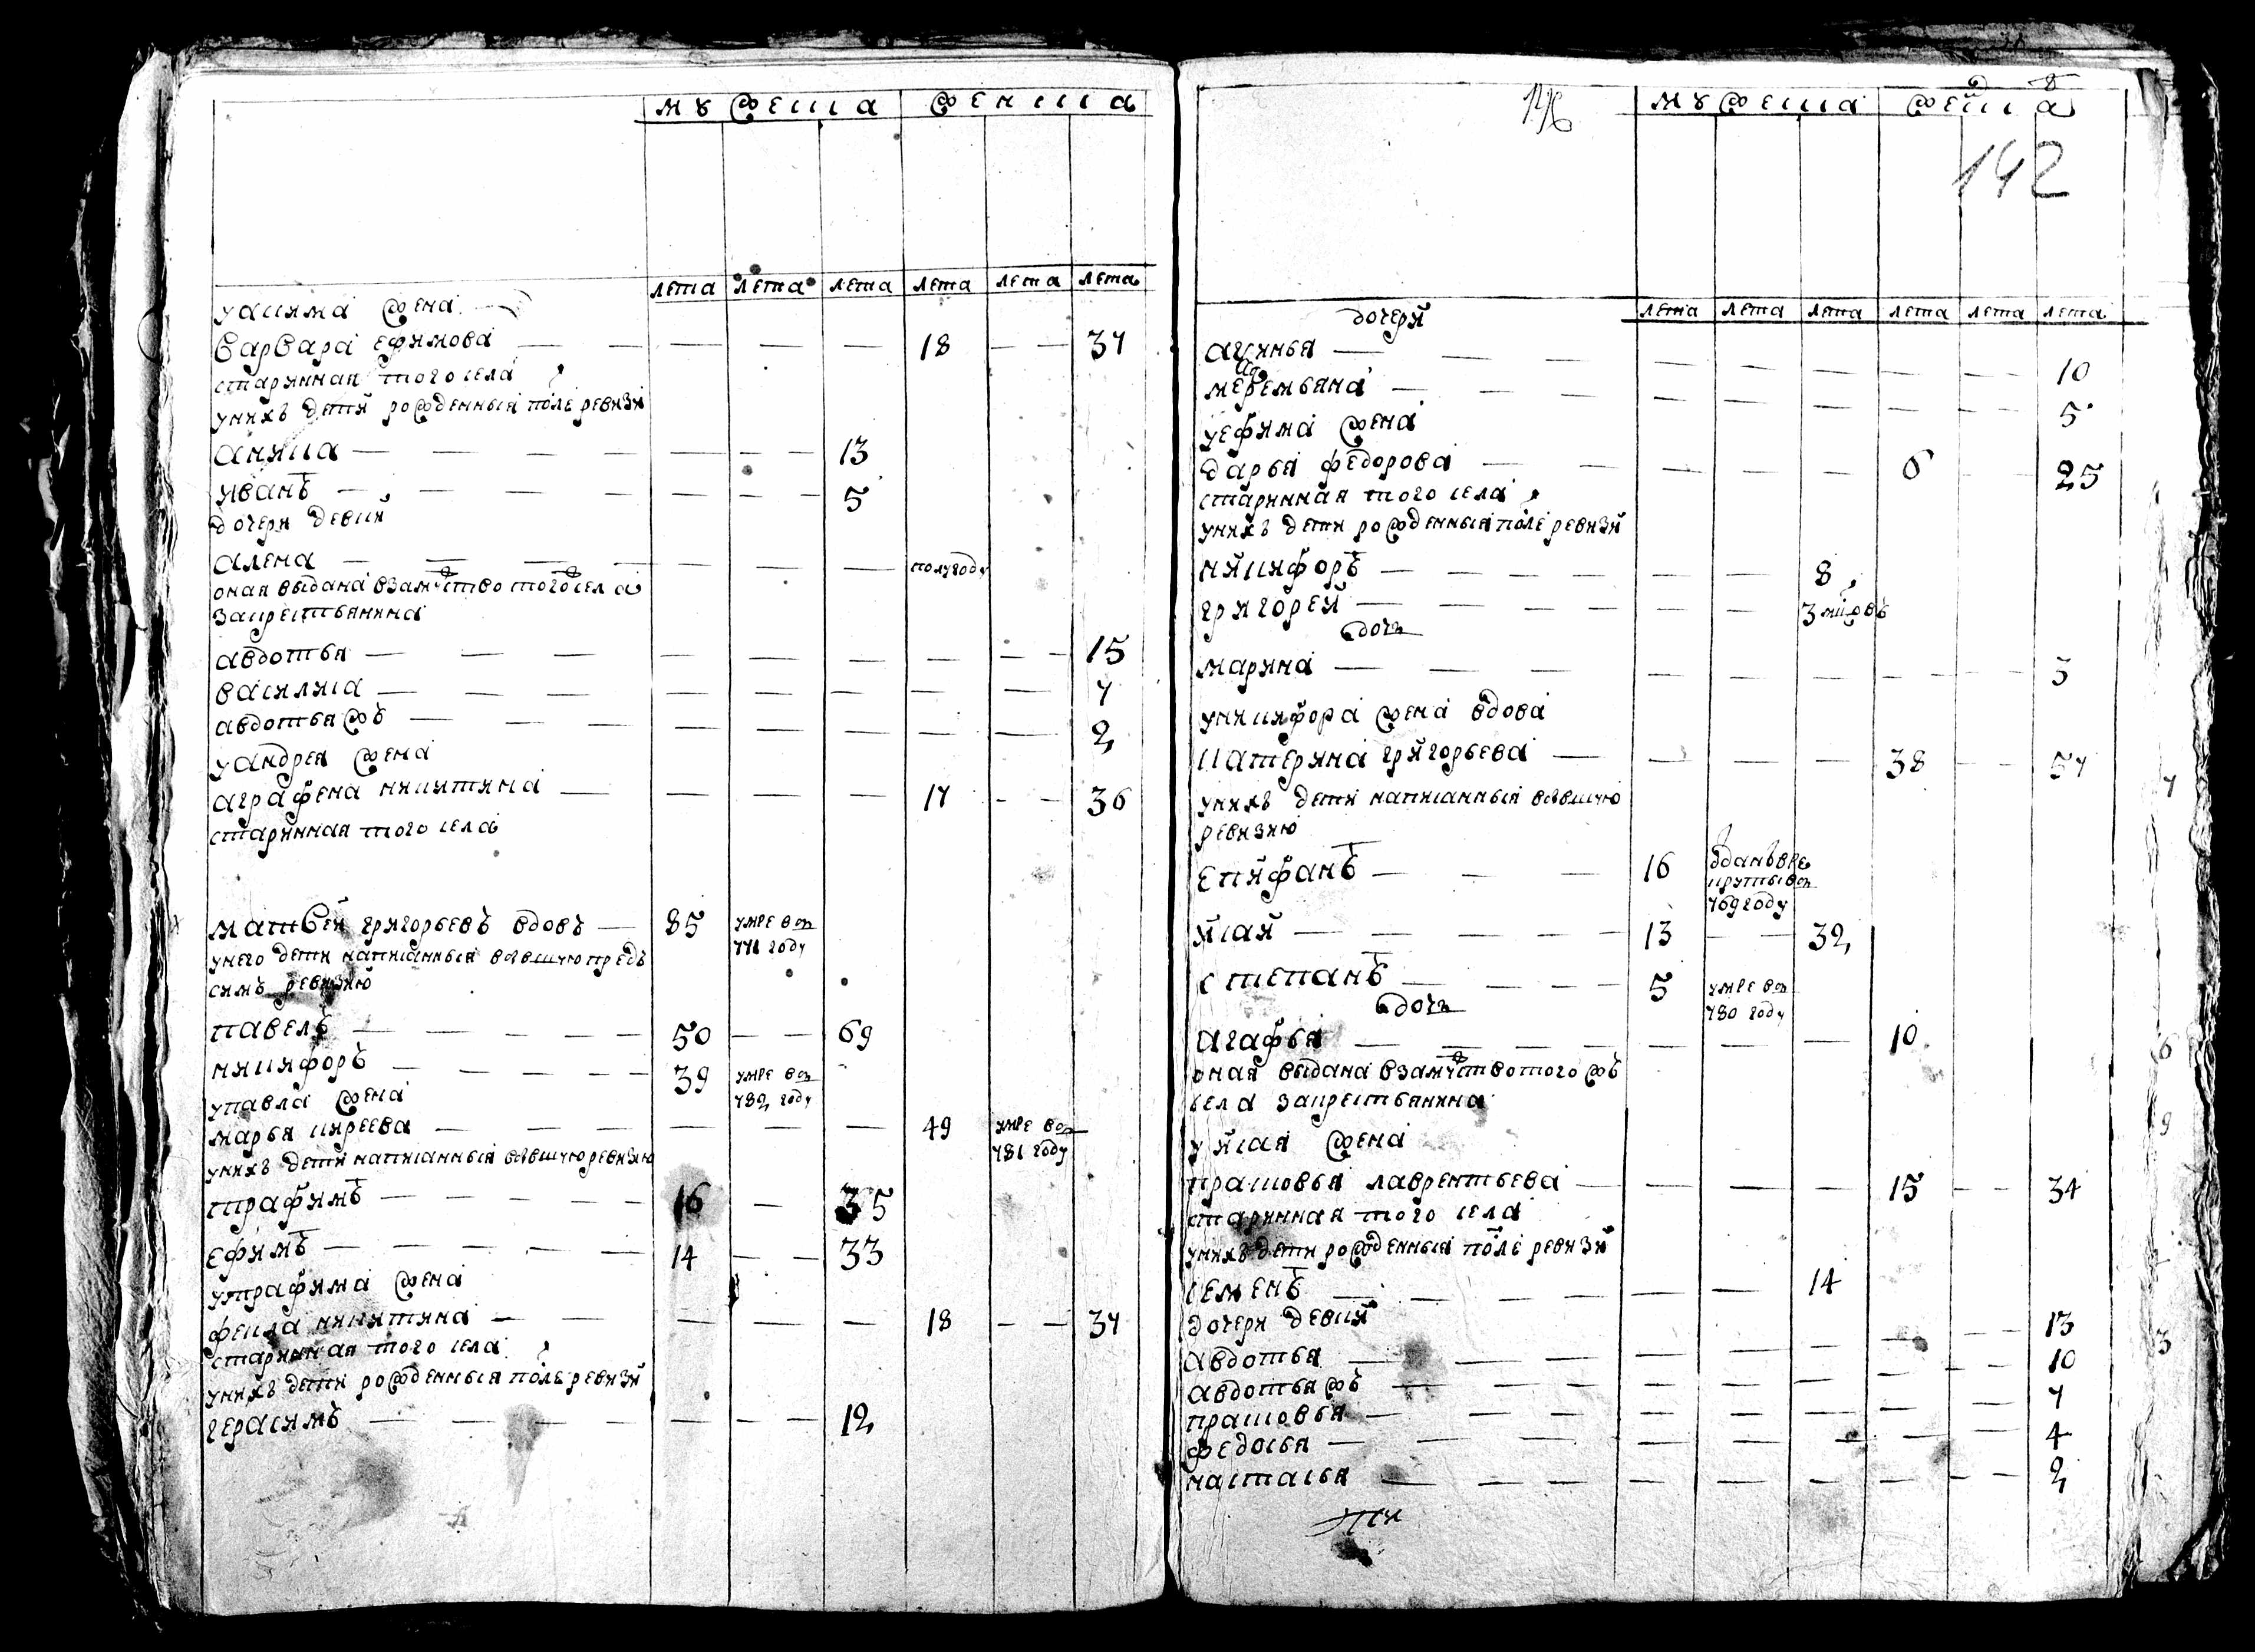 мужеска женска
лета лета лета лета лета лета
уакима жена
варвара ефимова — — — — — 18 — — 37
старинная того села
унихъ дети рожденныя после ревизи
аникa — — — — — — — 13
иванъ — — — — — — — 5
дочери девки
алена — — — — — — полугоду
оная выдана взамужство тогожсела
закрестьянина
авдотья — — — — — — — — — 15
василиса — — — — — — — — 7
авдотьяжъ — — — — — — — — 2
уандрея жена
аграфена никитина — — — — — 17 — — 36
старинная того села
матвей григорьевъ вдовъ — 85 умре въ
771 году
унего дети написанныя вбывшую предъ
симъ ревизию
павелъ — — — — 50 — — 69
никифоръ — — — — 39 умре въ
782 году
упавла жена
марья кирева — — — — — — 49 умре въ
781 году
унихъ дети написанныя вбывшуюревизию
трафимъ — — — — 16 — 35
ефимъ — — — — — 14 — — 33
утрафима жена
фекла никитина — — — — — 18 — — 37
старинная того села
унихъ дети рожденныя после ревизи
герасимъ — — — — — — 12
мужеска женска
142
лета лета лета лета лета лета
дочери
агинья — — — — — — — — 10
меремьяна — — — — — — — — 5
уефима жена
дарья федорова — — — — — 6 — — 25
старинная того села
унихъ дети рожденныя после ревизи
никифоръ — — — — — — 8
григорей — — — — — — 3 мцовъ
дочь
марина — — — — — — — — 3
уникифора жена вдова
катерина григорьева — — — — 38 — — 57
унихъ дети написанныя вбывшую
ревизию
епифанъ — — — 16 зданъвре
крутывъ
769году
исай — — — — — 13 — — 32
степанъ — — — — 5 умре въ
780 году
дочь
агафья — — — — — — — 10
оная выдана взамужствотогожъ
села закрестьянина
уисая жена
прасковья лаврентьева — — — — 15 — — 34
старинная того села
унихъ дети рожденныя после ревизи
семенъ — — — — — — 14
дочери девки 13
авдотья — — — — — — — — 10
авдотьяжъ — — — — — — — — 7
прасковья — — — — — — — — 4
федосья — — — — — — — —
настасья — — — — — — — — 2